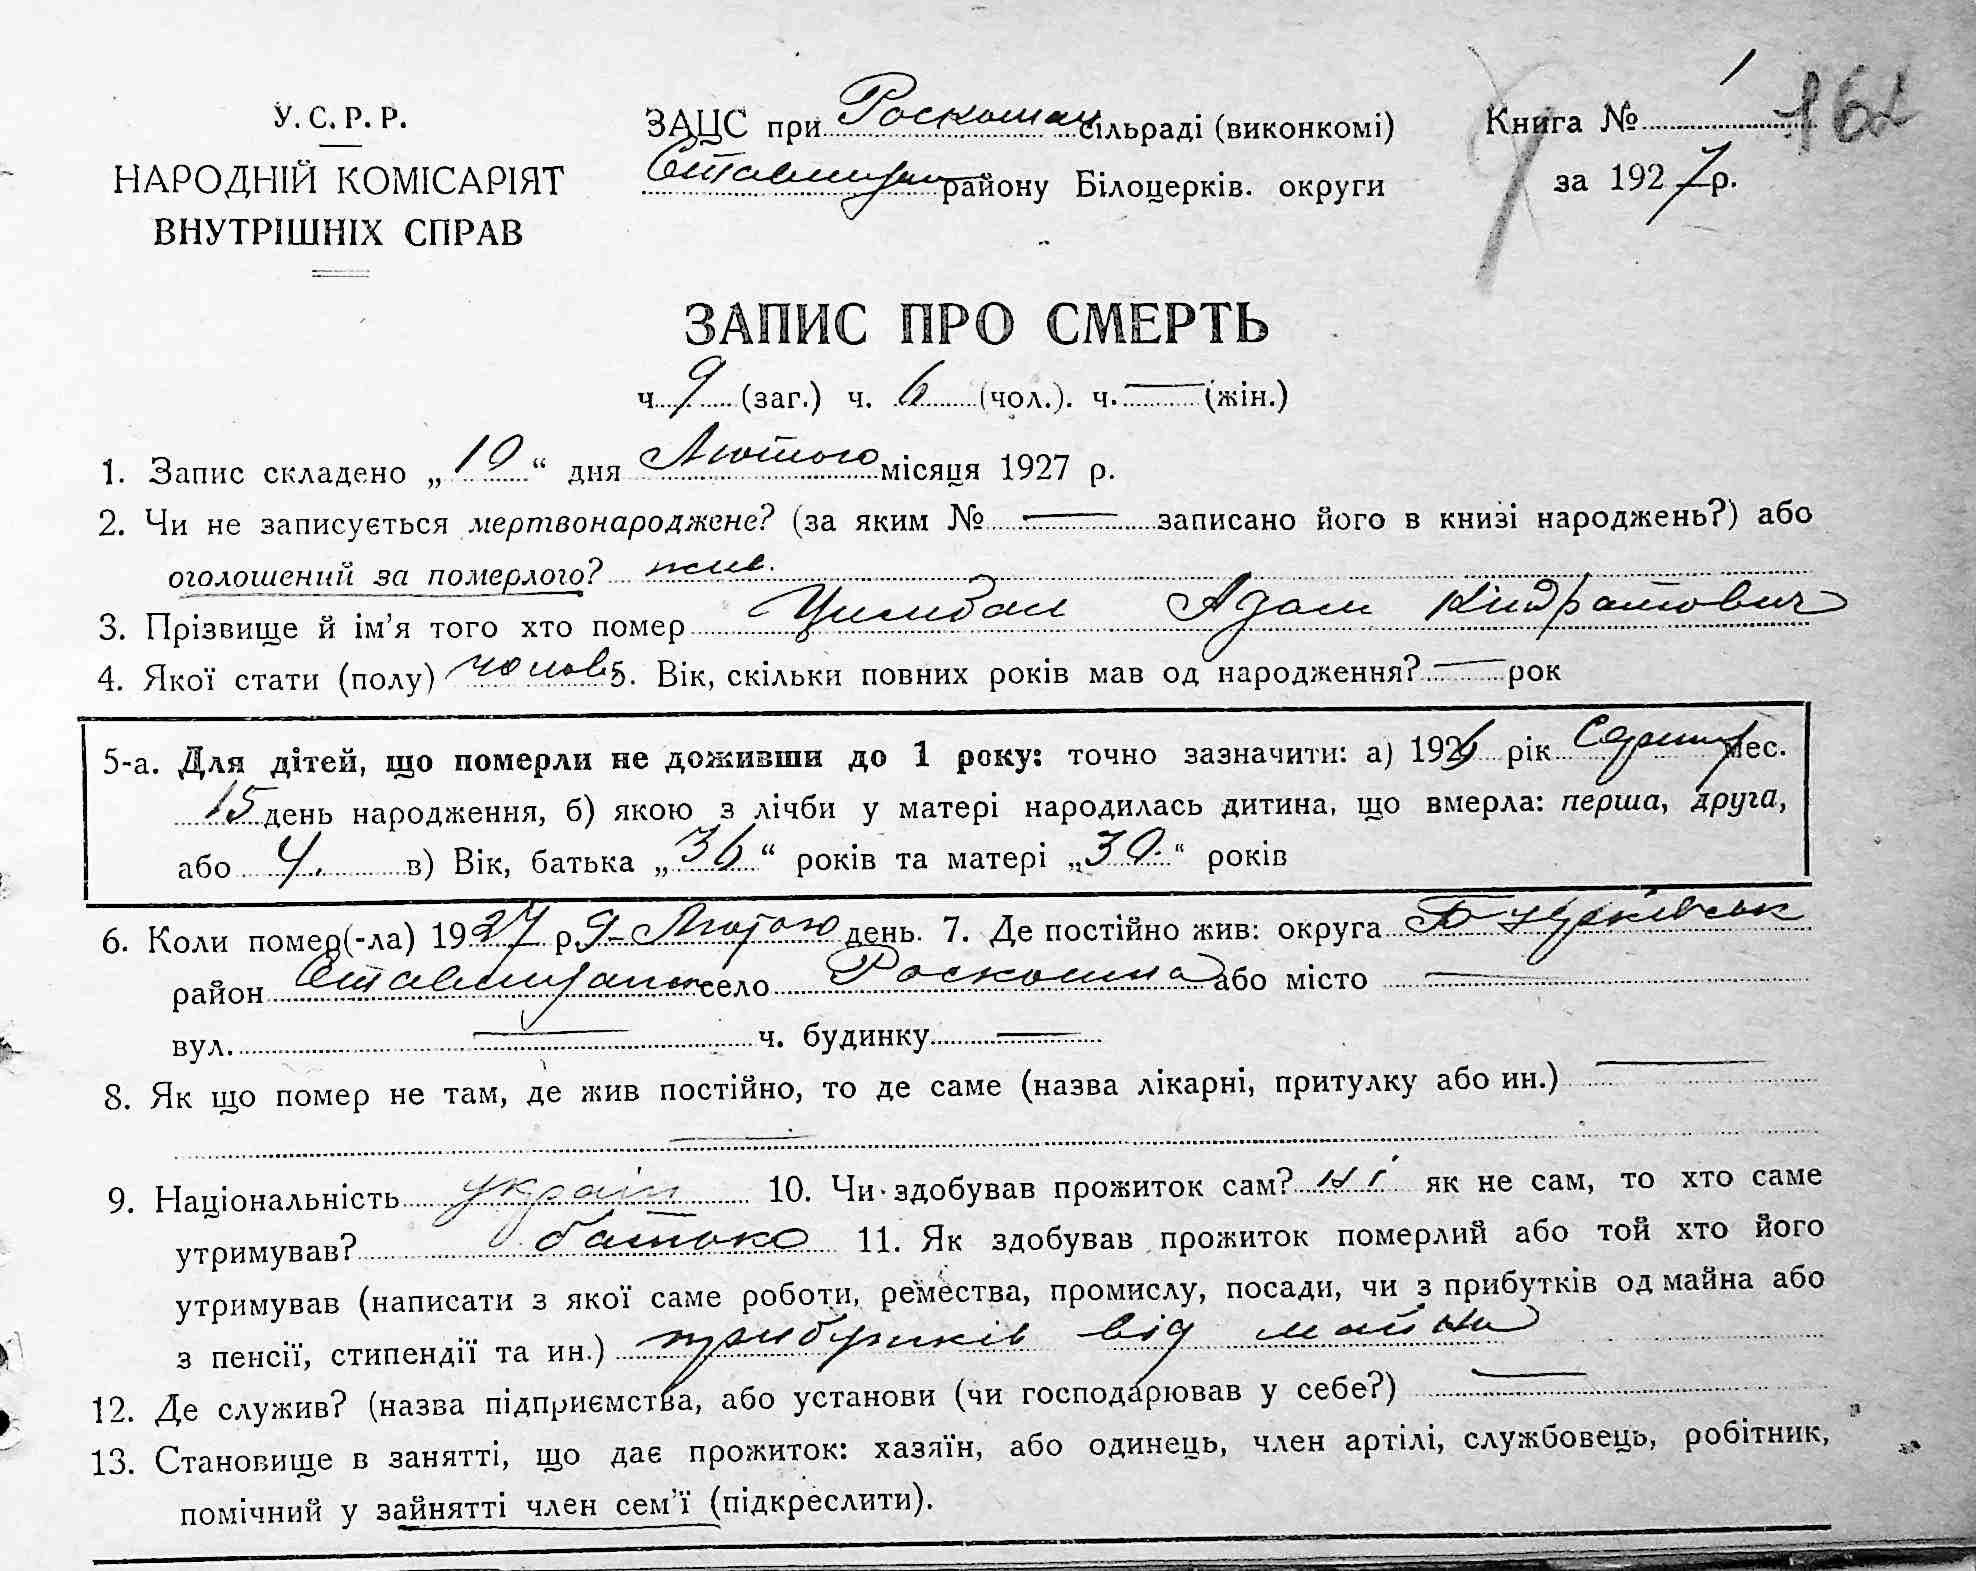 У.С.Р.Р.
НАРОДНІЙ КОМІСАРІЯТ
ВНУТРІШНІХ СПРАВ
ЗАЦС при Роскошан сільраді (виконкомі)
Ставищан району Білоцерків. округи
Книга № 1
162
за 1927 р.
ЗАПИС ПРО СМЕРТЬ
ч. 9 (заг.) ч. 6 (чол.). ч. — (жін.)
1. Запис складено „10“ дня Лютого місяця 1927 р.
2. Чи не записується мертвонароджене? (за яким № — записано його в книзі народжень?) або
оголошений за померлого? жив.
3. Прізвище й ім'я того хто помер Цимбал Адам Кіндратович
4. Якої стати (полу) чолов 5. Вік, скільки повних років мав од народження? — рок
5-а. Для дітей, що померли не доживши до 1 року: точно зазначити: а) 1926 рік Серпня мес.
15 день народження, б) якою з лічби у матері народилась дитина, що вмерла: перша, друга,
або 4. в) Вік, батька „36“ років та матері „30.“ років
6. Коли помер(-ла) 1927 р 9 Лютого день. 7. Де постійно жив: округа Б Церківськ
район Ставищанськ село Роскошна або місто —
вул. — ч. будинку —
8. Як що помер не там, де жив постійно, то де саме (назва лікарні, притулку або ин.) —
—
9. Національність україн 10. Чи здобував прожиток сам? ні як не сам, то хто саме
утримував? батько 11. Як здобував прожиток померлий або той хто його
утримував (написати з якої саме роботи, ремества, промислу, посади, чи з прибутків од майна або
з пенсії, стипендії та ин.) прибутків від майна
12. Де служив? (назва підприємства, або установи (чи господарював у себе?) —
13. Становище в занятті, що дає прожиток: хазяїн, або одинець, член артілі, службовець, робітник,
помічний у зайнятті член сем'ї (підкреслити).